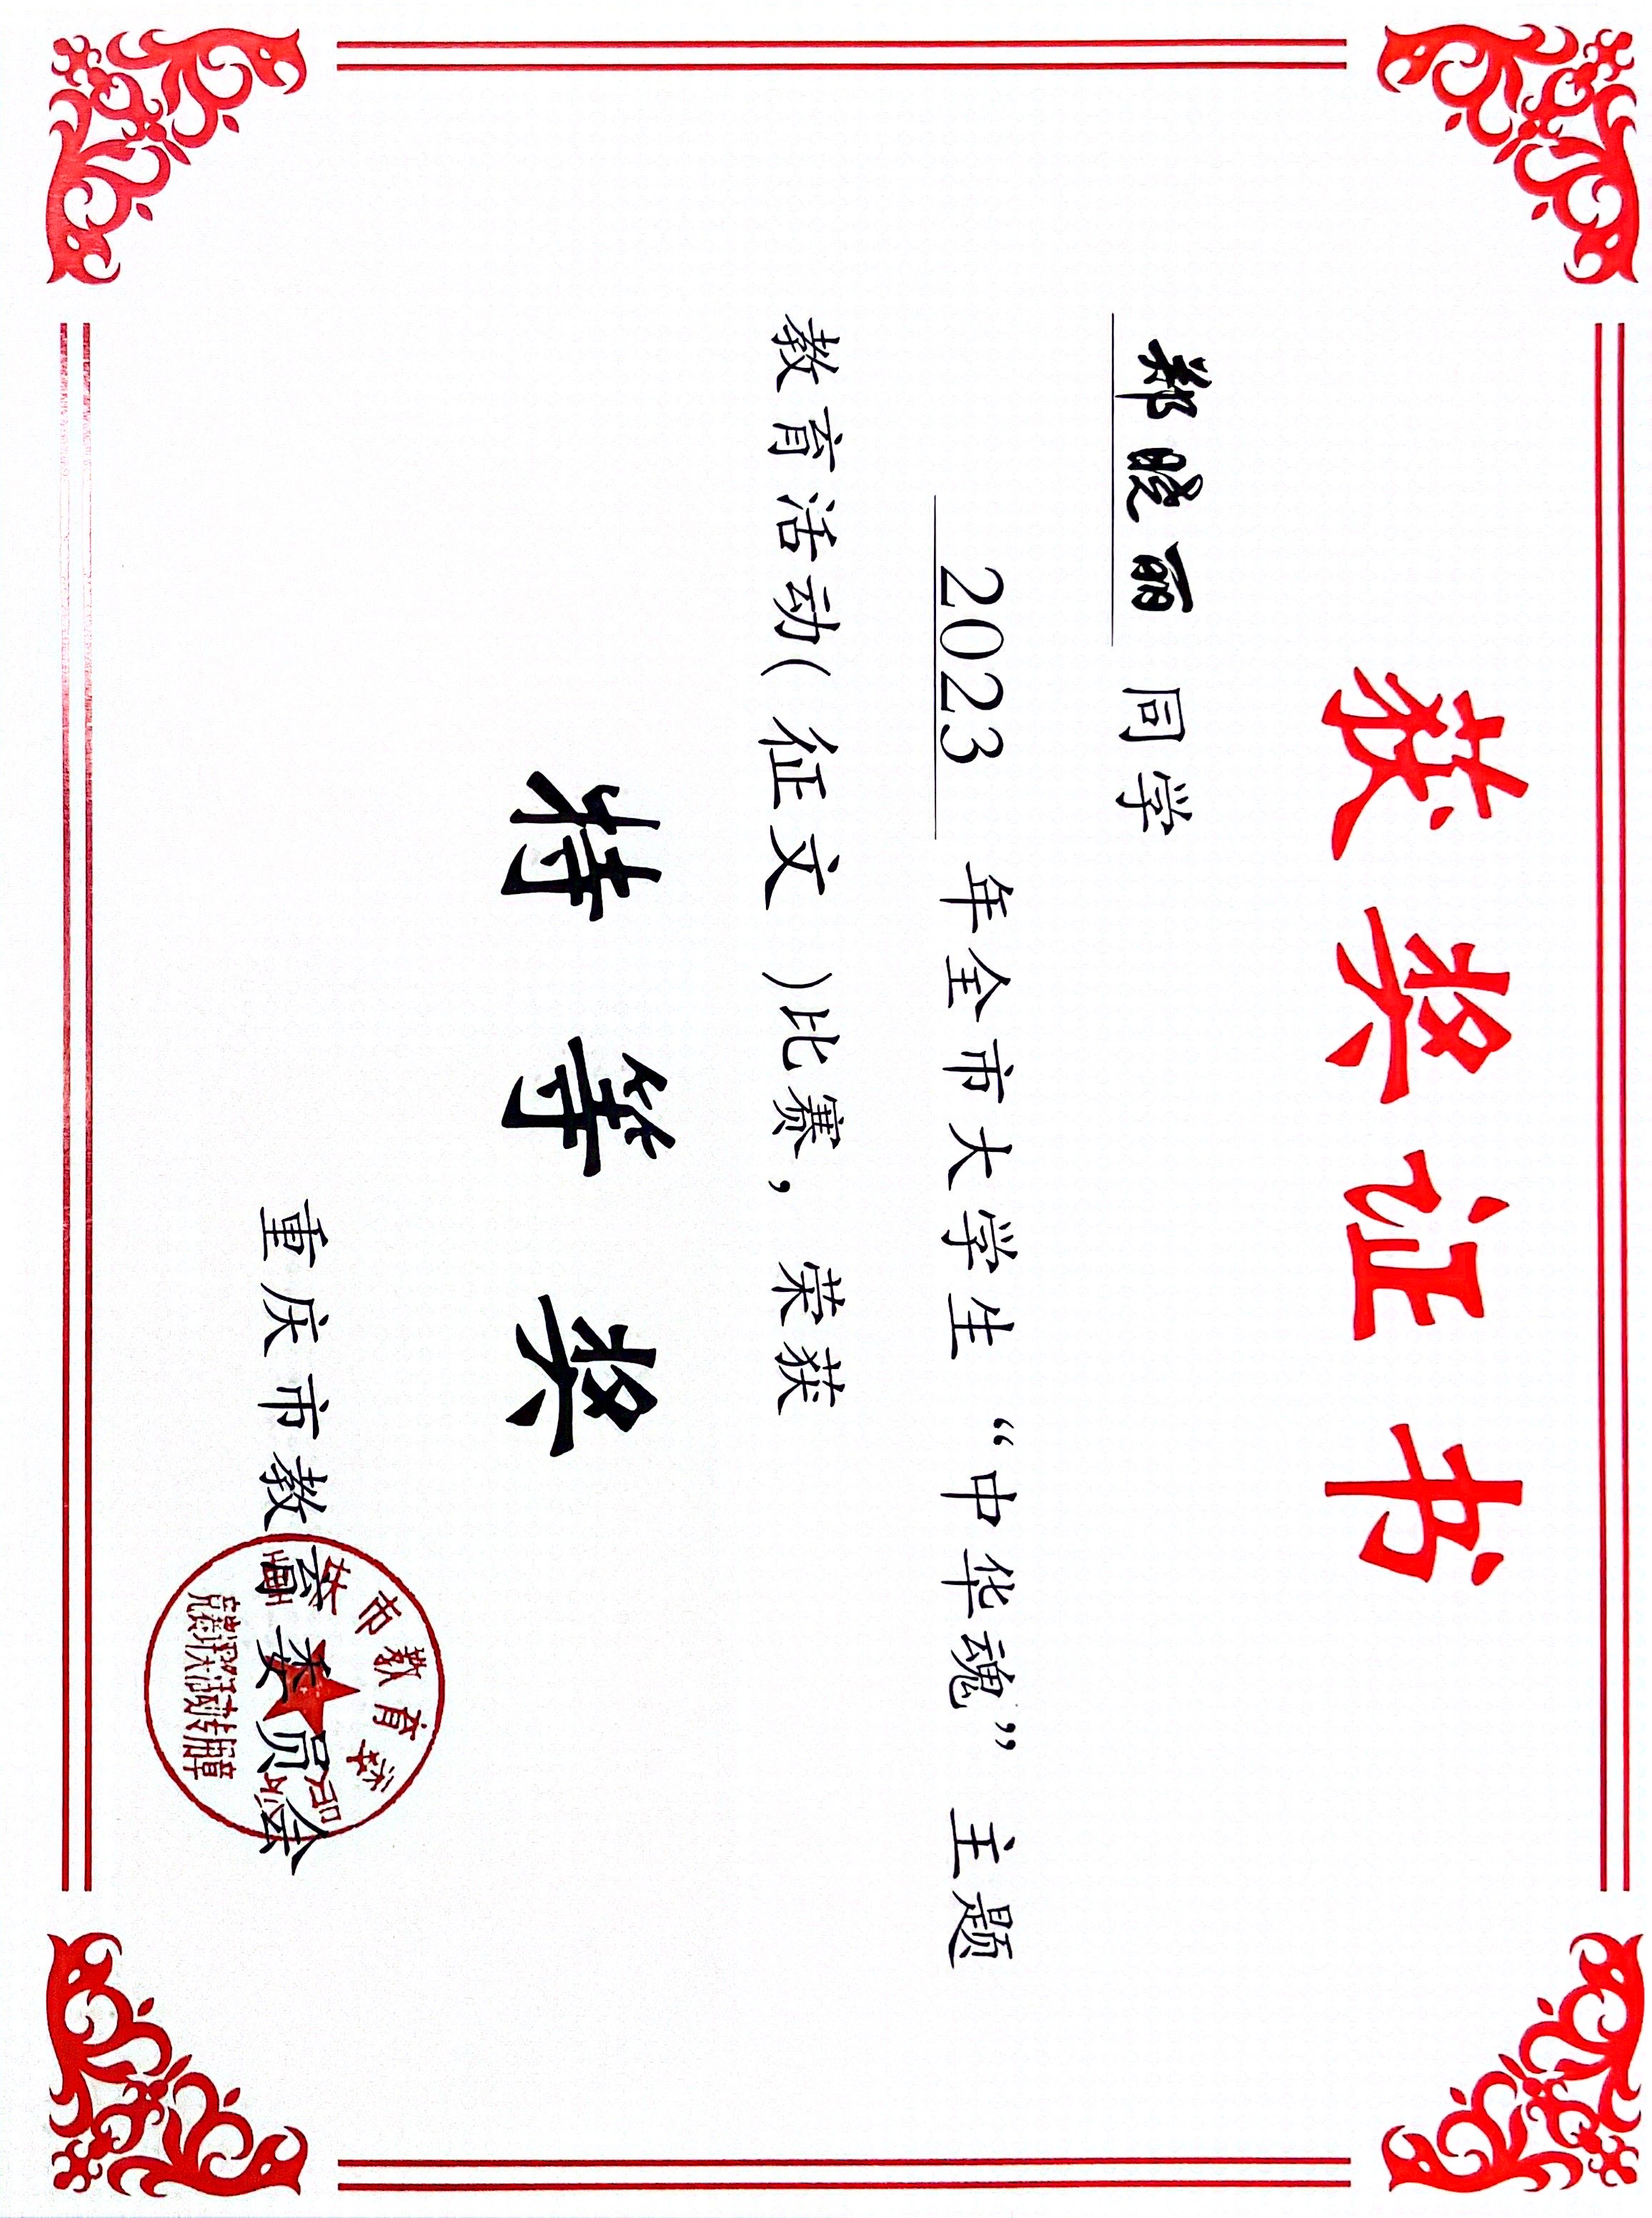 获奖证书
郑晓丽 同学
2023 年全市大学生“中华魂”主题
教育活动(征文)比赛，荣获
特等奖
重庆市教育委员会